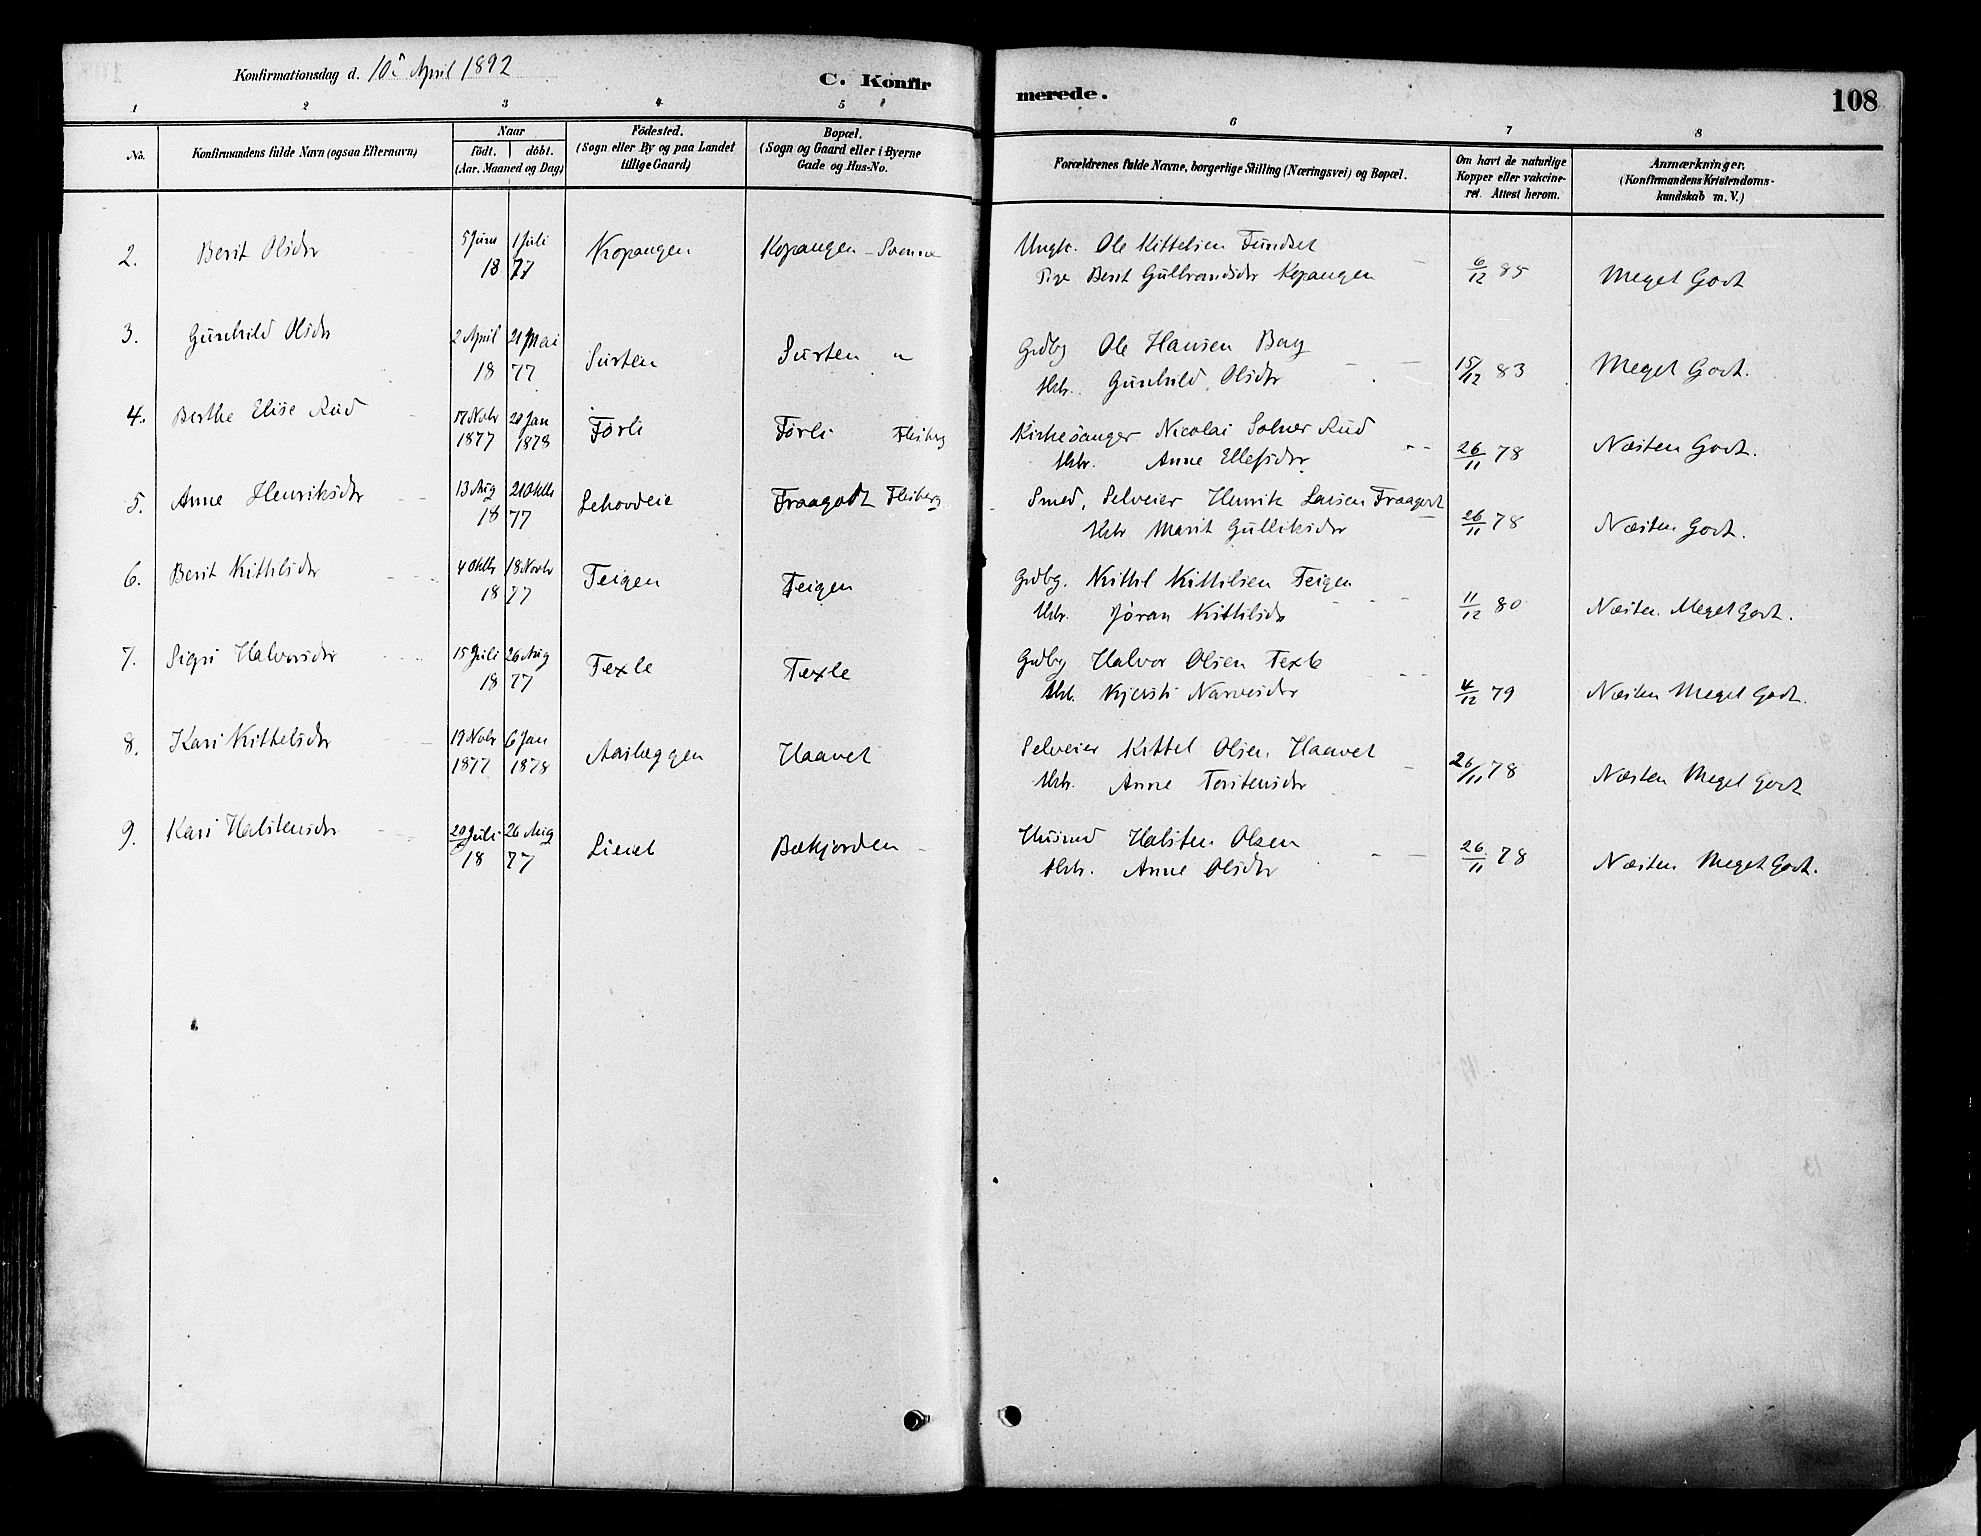 Konfirmationsdag d. 10de April 1892
C. Konfirmerede.
108
1 2 3 4 5 6 7 8
No. Konfirmandens fulde Navn (ogsaa Efternavn) Naar födt. döbt. (Aar, Maaned og Dag) Födested. (Sogn eller By og paa Landet tillige Gaard) Bopæl. (Sogn og Gaard eller i Byerne Gade og Hus-No. Forældrenes fulde Navne, borgerlige Stilling (Næringsvei) og Bopæl. Om havt de naturlige Kopper eller vakcineret. Attest herom. Anmærkninger. (Konfirmandens Kristendomskundskab m. V.)
2. Berit Olsdtr 5 Juni 1 Juli Kopangen Kopangen - Svenne Ungk. Ole Kittelsen Fundset
18 77 Pige Berit Gulbrandsdtr Kopangen 6/12 85 Meget Godt
3. Gunhild Olsdtr 2 April 21 Mai Surten Surten " Grdbg Ole Hansen Berg
18 77 Hstr. Gunhild Olsdtr 15/12 83 Meget Godt.
4. Berthe Elise Rud 17 Novbr 20 Jan Førli Førli Flesberg Kirkesanger Nicolai Solner Rud
1877 1878 Hstr. Anne Ellefsdtr 26/11 78 Næsten Godt.
5. Anne Henriksdtr 13 Aug 21 Oktbr Lehovdeie Fraagodt Flesberg Smed, Selveier Henrik Larsen Fraagodt
18 77 Hstr Marit Gulliksdtr 26/11 78 Næsten Godt.
6. Berit Kittilsdtr 4 Oktbr 18 Novbr Teigen Teigen Grdbg. Kittil Kittilsen Teigen
18 77 Hstr. Jøran Kittilsdtr 11/12 80 Næsten Meget Godt.
7. Sigri Halvorsdtr 15 Juli 26 Aug Texle Texle Grdbg Halvor Olsen Texle
18 77 Hstr. Kjersti Narvesdtr 4/12 79 Næsten Meget Godt.
8. Kari Kittelsdtr 19 Novbr 6 Jan Aasleggen Haavet Selveier Kittel Olsen Haavet
1877 1878 Hstr. Anne Torstensdtr 26/11 78 Næsten Meget Godt
9. Kari Halstensdtr 20 Juli 26 Aug Lieiet Bækjorden Husmd Halsten Olsen
18 77 Hstr. Anne Olsdtr 26/11 78 Næsten Meget Godt.